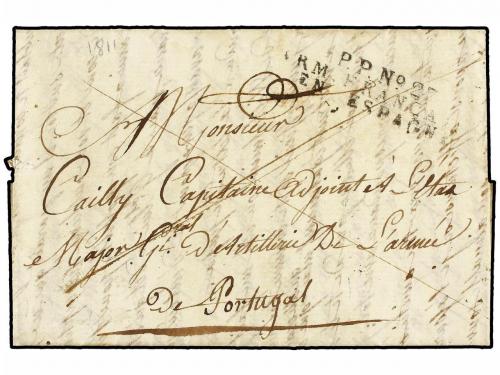 1811
P.P. No. 27
ARM. FRANÇA
EN ESPAGN
Monsieur
Cailly Capitaine adjoint à L'Etat
Major Géral D'Artillerie De L'armée
De Portugal